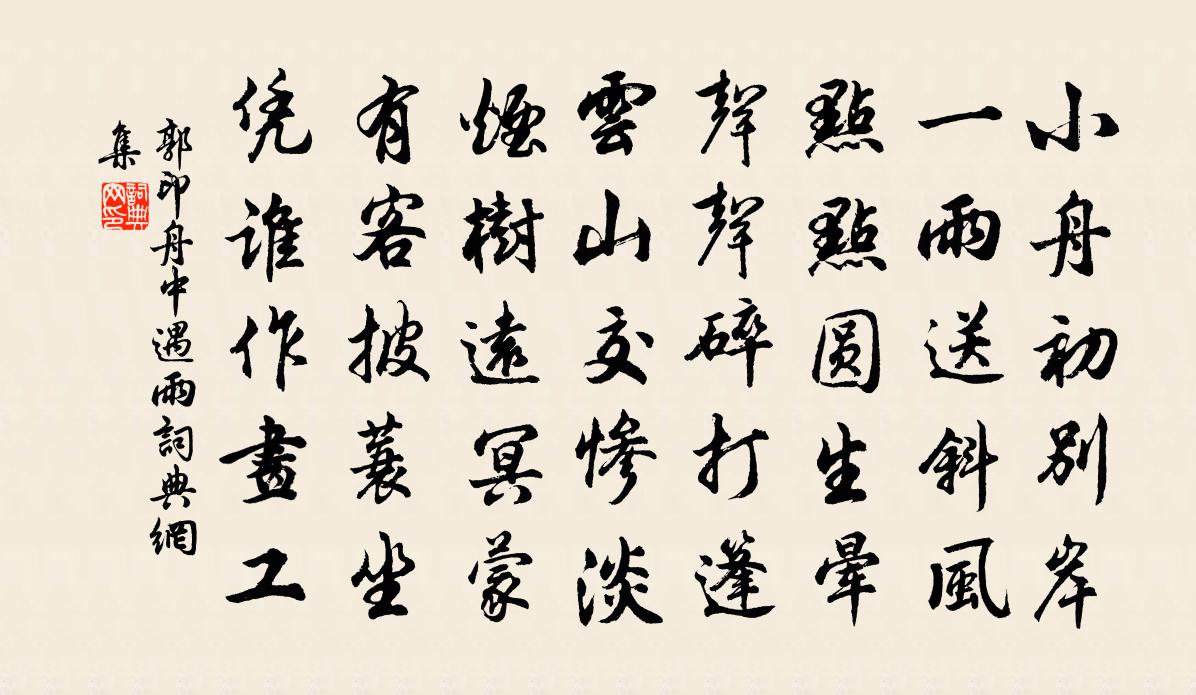 小舟初別岸
一雨送斜風
點點圓生暈
聲聲碎打篷
雲山交慘淡
煙樹遠冥蒙
有客披蓑坐
凭誰作畫工
郭印舟中遇雨詞典網
集
詞典网印